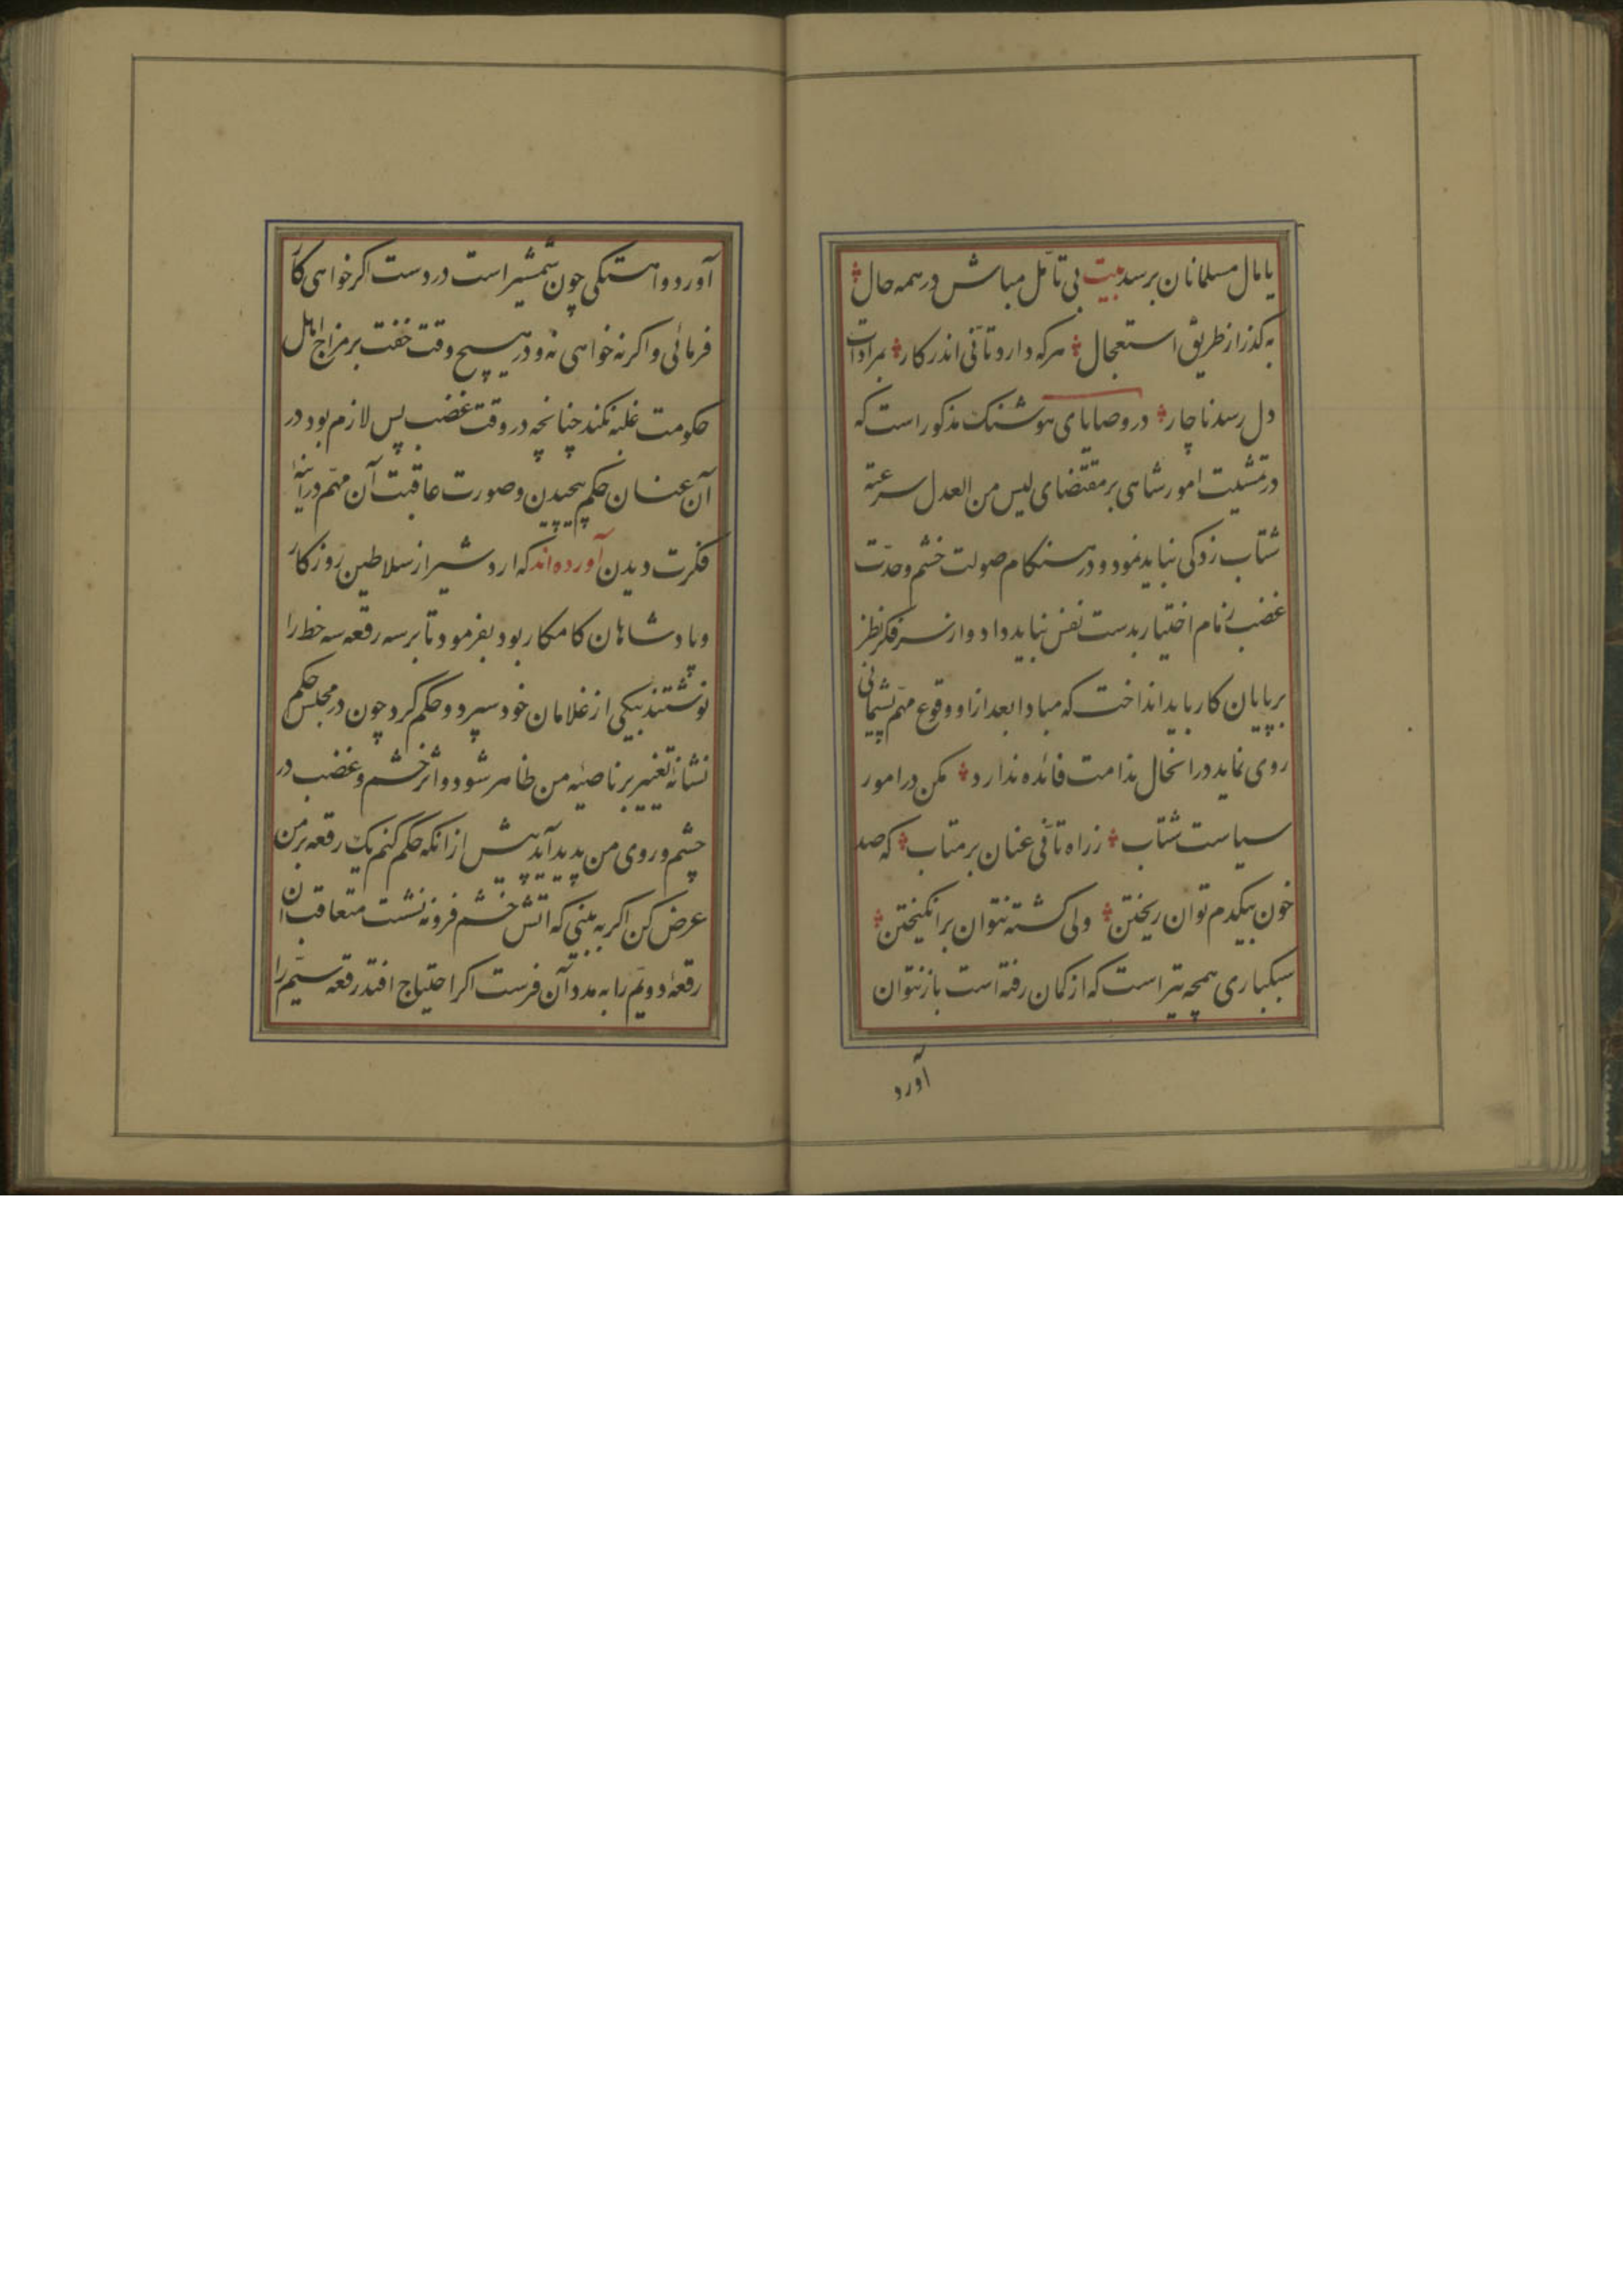 یا مال مسلمانان برسد بیت بی تأمل مباش در همه حال
به کذر از طریق استعجال هرکه دارد تأنی اندر کار بمرادات
دل رسد ناچار در وصایای هوشنک مذکور است که
در تمشیت امور شاهی بر مقتضای لیس من العدل سرعته
شتاب زدکی نباید نمود و در هنکام صولت خشم و حدّت
غضب زمام اختیار بدست نفس نباید داد و از سر فکر نظر
بر پایان کار باید انداخت که مبادا بعد از او وقوع مهم پشیمانی
روی نماید در انحال ندامت فائده ندارد مکن در امور
سیاست شتاب ز راه تأنی عنان بر متاب که صد
خون بیکدم توان ریختن ولی کشته نتوان برانکیختن
سبکباری همچه تیر است که از کمان رفته است باز نتوان
آورد
آورد و اهستکی چون شمشیر است در دست اکر خواهی کار
فرمائی و اکر نه خواهی نه و در هیچ وقت خفت بر مزاج اهل
حکومت غلبه نکند چنانچه در وقت غضب پس لازم بود در
آن عنان حکم پیچیدن و صورت عاقبت آن مهم در آئینهٔ
فکرت دیدن آورده‌اند که اردشیر از سلاطین روزکار
و پادشاهان کامکار بود بفرمود تا بر سه رقعه سه خط را
نوشتند بیکی از غلامان خود سپرد و حکم کرد چون در مجلس حکم
نشانهٔ تغییر بر ناصیه من ظاهر شود و اثر خشم و غضب در
چشم و روی من پدید آید پیش از انکه حکم کنم یک رقعه بر من
عرض کن اکر به بینی که اتش خشم فرو نه نشست متعاقب ان
رقعهٔ دویّم را به مدد آن فرست اکر احتیاج افتد رقعه سیّم را